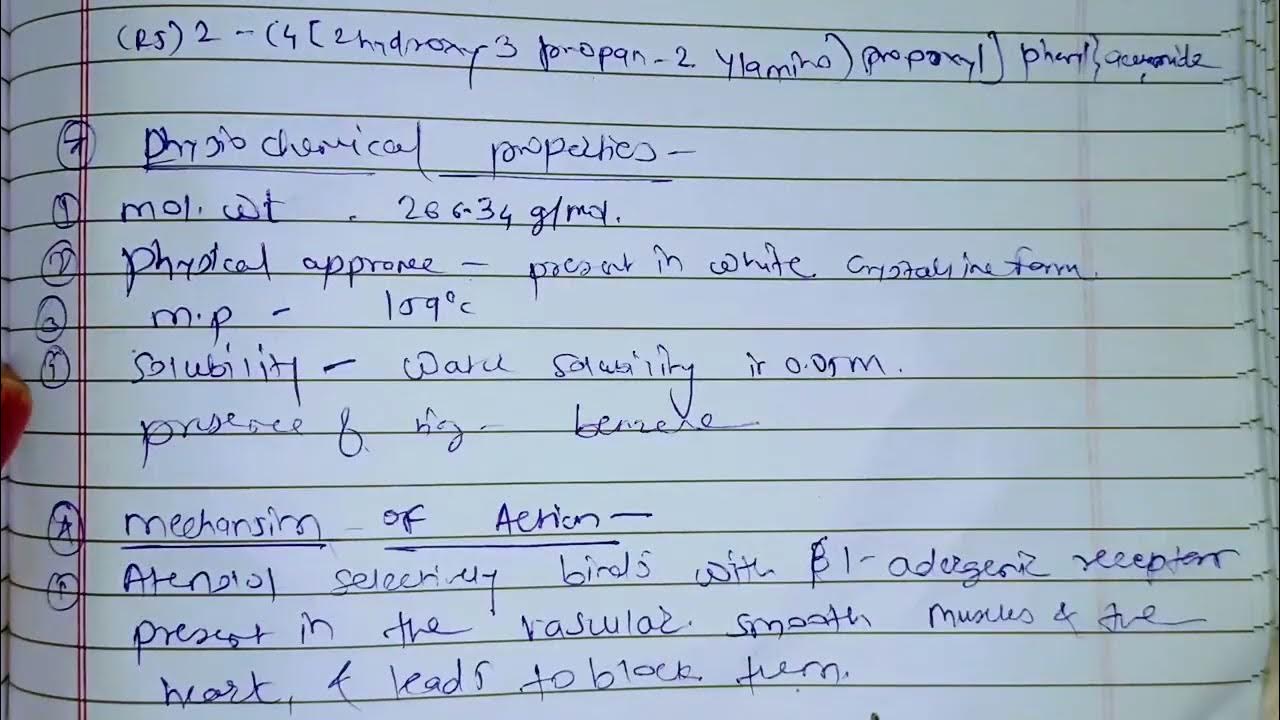 (RS) 2 - (4 [2 hydroxy 3 propan - 2 ylamino) propoxy] phenyl} acetamide
Physio chemical properties -
① mol. wt . 266.34 g/mol.
② physical apprance - present in white crystalline form.
③ m.p - 159°c
④ solubility - water solubility is 0.05M.
presence of ring - benzene
mechansim of Action -
① Atenolol selectively binds with β1-adrgenic receptors
present in the vascular smooth muscles & the
heart, & leads to block them.